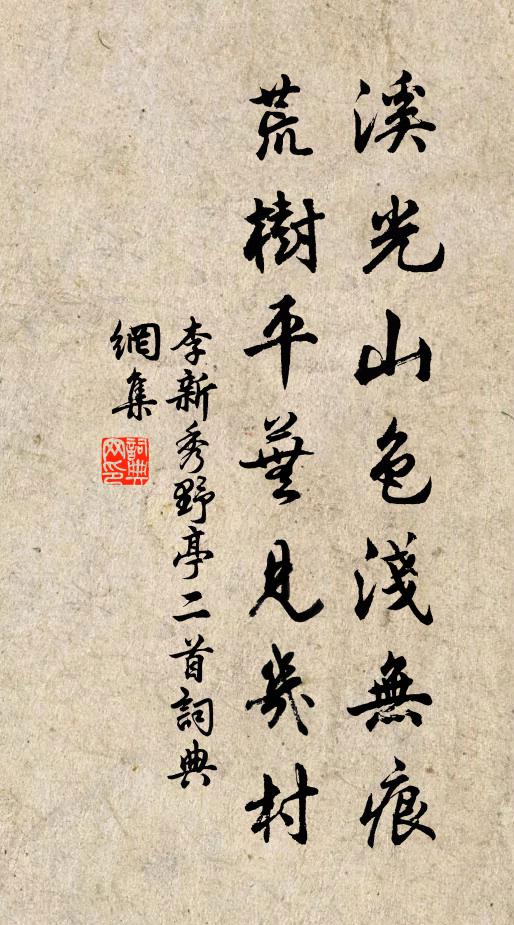 溪光山色淺無痕
荒樹平蕪見幾村
李新秀野亭二首詞典
網集
詞典網印